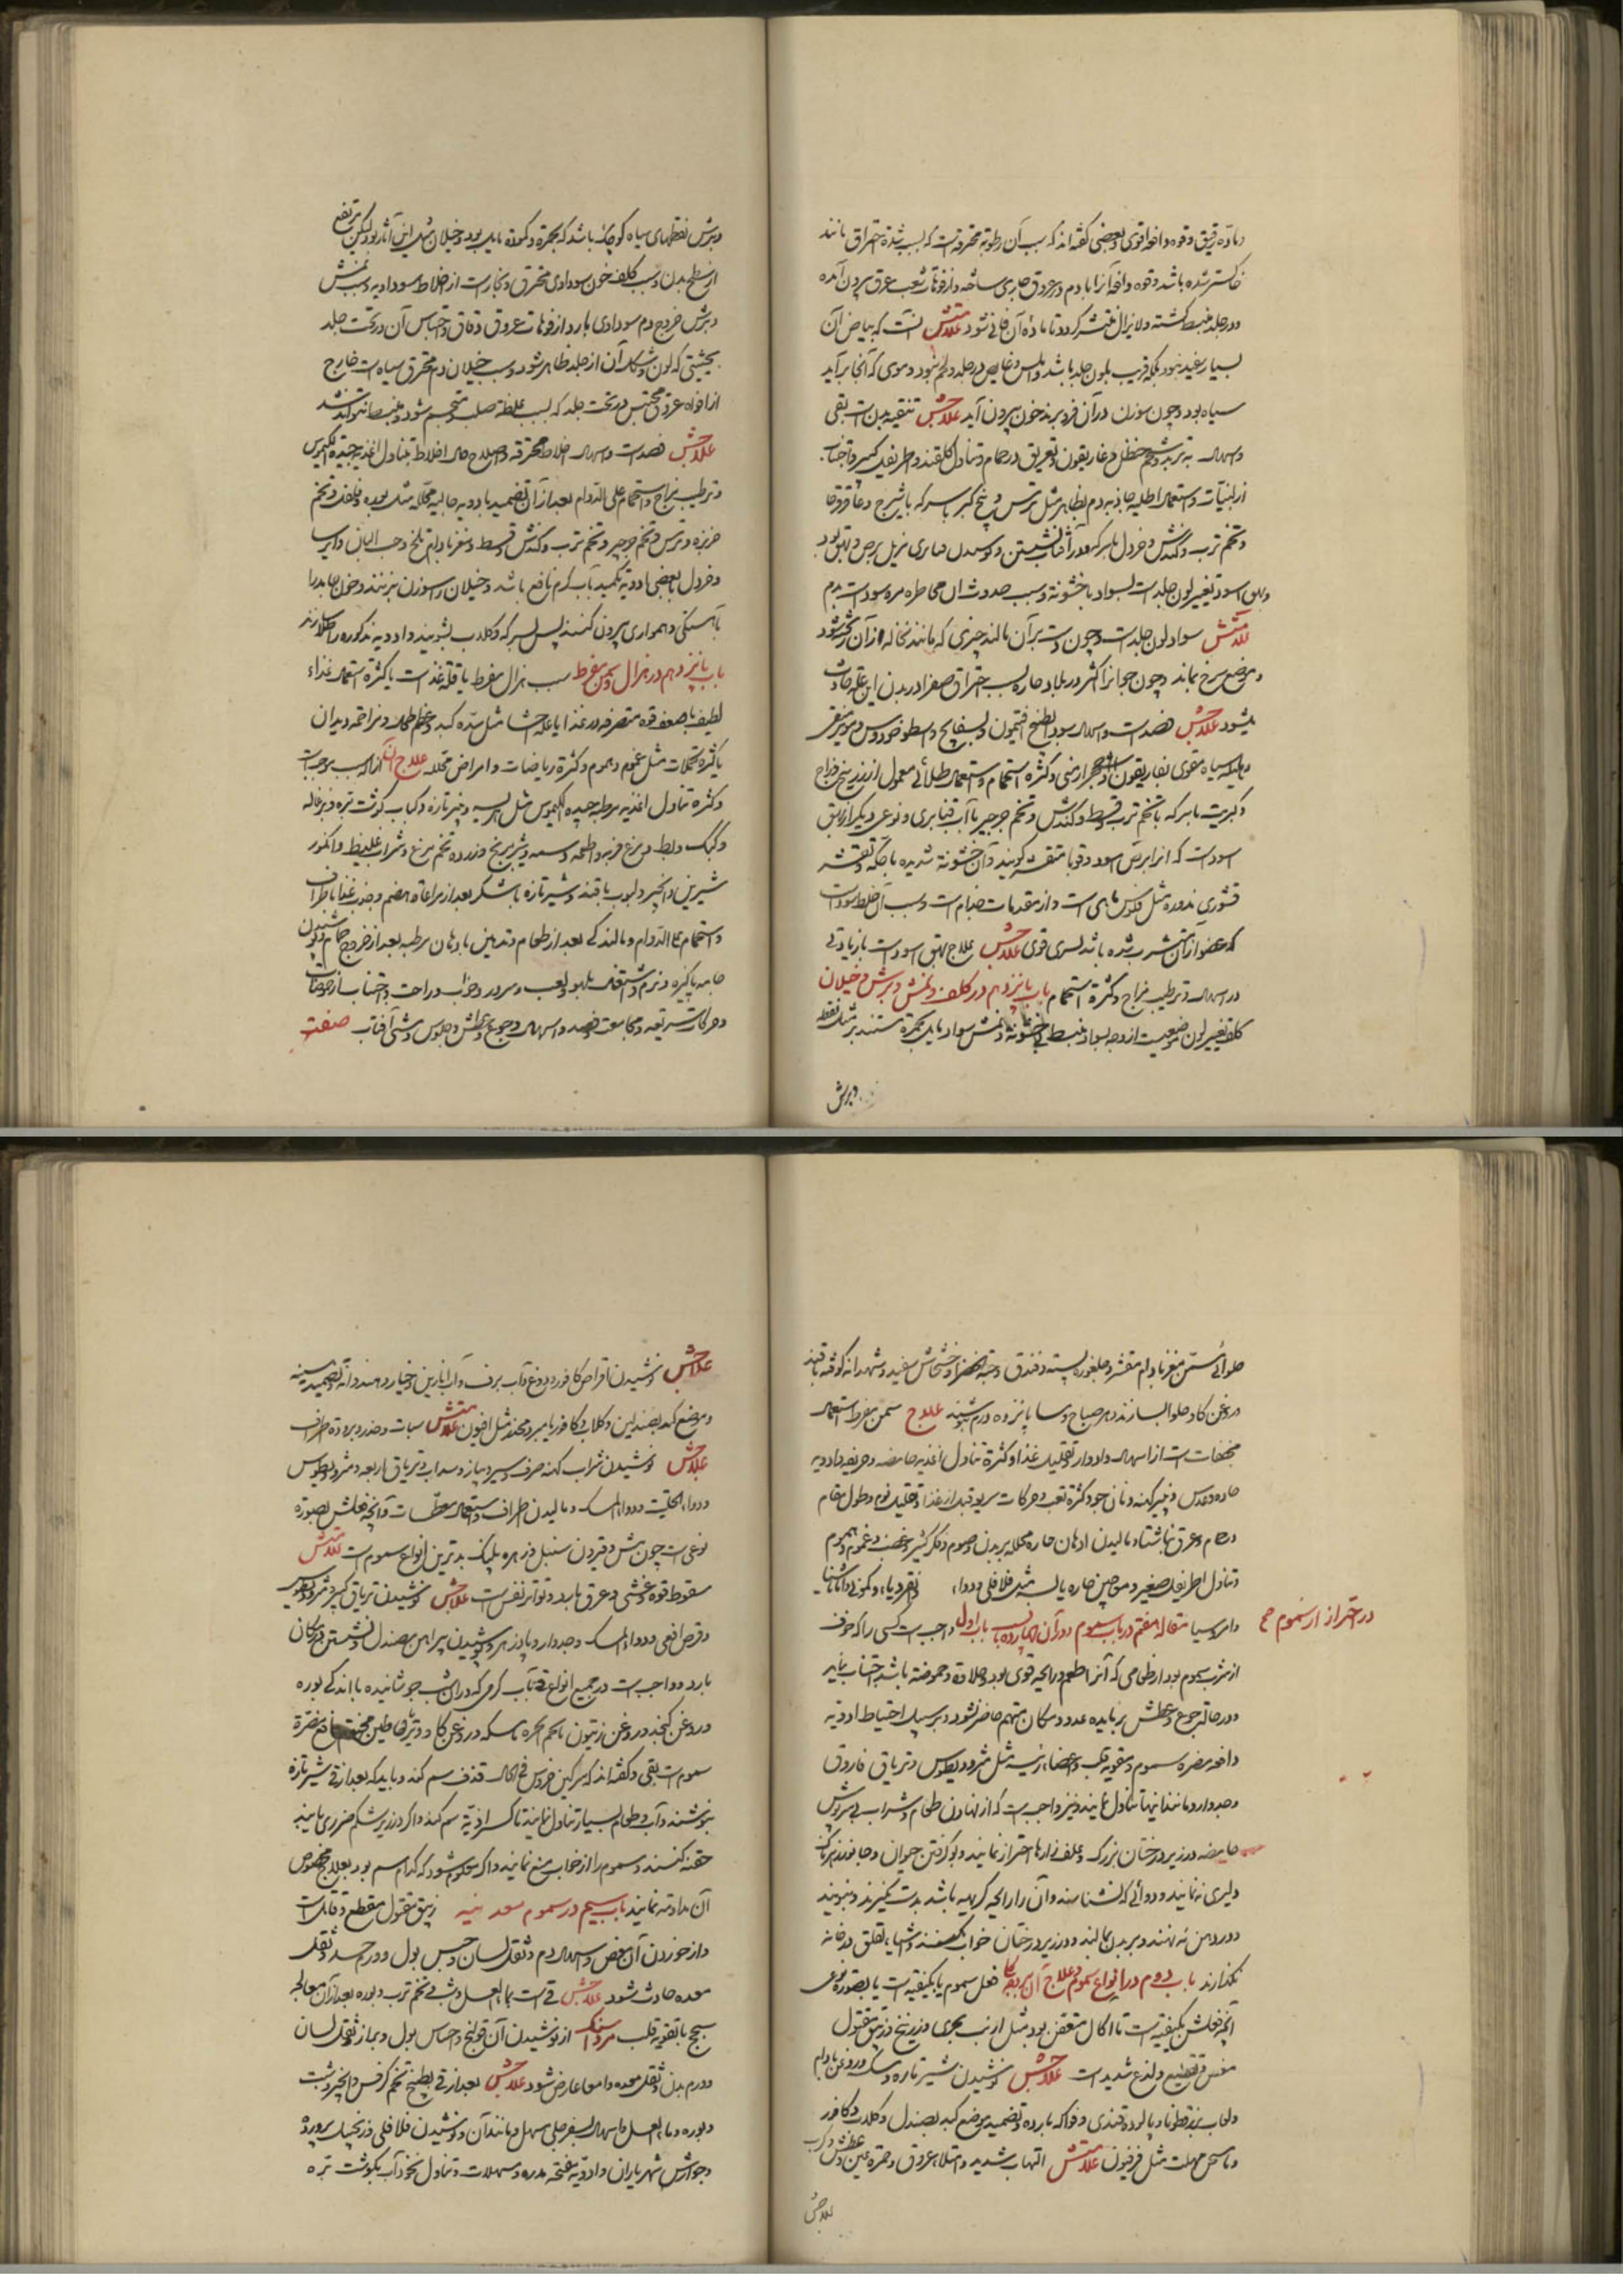 ماده رقیق و قوه دافعه قوی و بعضی گفته‌اند که سبب آن رطوبة محترقه است که بسبب شدة احتراق مانند
خاکستر شده باشد و قوه دافعه آنرا با دم در عروق جاری ساخته و از فوهات شعب عروق بیرون آمده
و در جلد منبسط گشته و لایزال منتشر گردد تا ماده آن فانی شود علامتش آنست که بیاض آن
بسیار سفید نبود بلکه قریب بلون جلد باشد و املس و غایص در جلد و لحم نبود و موی که از آنجا برآید
سیاه بود و چون سوزن در آن فرو برند خون بیرون آید علاجش تنقیه بدنست بقی
و اسهال به تربد و شحم حنظل و غاریقون و تعریق در حمام و تناول گلقند و اطریفل کبیر و اجتناب
از لبنیات و استعمال اطلیه جاذبه دم بظاهر مثل ترس و بیخ کبر با سرکه یا شیرج و عاقرقرحا
و تخم ترب و کندش و خردل با سرکه و در آفتاب نشستن
بهق اسود تغییر لون جلد است بسواد با خشونة و سبب حدوث آن مخالطه مره سوداست بدم
علامتش سواد لون جلد است و چون دست بر آن مالند چیزی که مانند نخاله از آن
و موضع سرخ بماند و چون جوانرا اکثر در بلاد حاره بسبب احتراق صفرا در بدن این علة حادث
میشود علاجش فصد است و اسهال سودا بطبیخ افتیمون و بسفایج و اسطوخودوس و مویز منقی
و هلیله سیاه مقوی بغاریقون و حجر ارمنی و کثرة استحمام و استعمال طلائی معمول از زرنیخ و زاج
و کبریت با سرکه یا تخم ترب و قسط و کندش و تخم جرجیر با آب قنابری و نوعی دیگر از بهق
اسود است که آنرا برص اسود و قوبا متقشره گویند و آن خشونة شدیده با حکه و تقشر
قشوری مدوره مثل فلوس ماهی است و از مقدمات جذام است و سبب آن خلط سودا است
که عضو از آن متشرب شده باشد علاجش علاج بهق اسود است با زیادتی
در اسهال و ترطیب مزاج و کثرة استحمام باب پانزدهم در کلف و نمش و برش و خیلان
کلف تغییر لون موضعیست از وجه بسواد و منبسط بی خشونة و نمش سواد مایل بحمرة مستدیر مثل نقطه
و برش
و برش نقطهای سیاه کوچک باشد که بحمرة و کمودة مایل بود و خیلان مثل این آثار بود لیکن مرتفع
از سطح بدن و سبب کلف خون سوداوی محترق و بخار است از اخلاط سوداویه و سبب نمش
و برش خروج دم سوداوی بارد از فوهات عروق دقاق و احتباس آن در تحت جلد
بحیثیتی که لون و شکل آن از جلد ظاهر شود و سبب خیلان دم محترق سیاه است خارج
از افواه عروق محتبس در تحت جلد که بسبب غلظة صلب و متحجر شود و منبسط نتواند شد
علاجش فصد است و اسهال اخلاط محترقه و اصلاح حال اخلاط بتناول اغذیه جیدة الکیموس
و ترطیب مزاج و استحمام علی الدوام بعد از آن تضمید بادویه جالیه محلله مثل بوره و فلفل و تخم
خربزه و ترس و تخم جرجیر و تخم ترب و کندش و قسط و مغز بادام تلخ و حب البان و ایرسا
و خردل با بعضی ادویه تکمید بآب گرم نافع باشد و خیلان را سوزن بزنند و خون جامد را
بآهستگی و همواری بیرون کنند پس بسرکه و گلاب بشویند و ادویه مذکوره را طلا سازند
باب پانزدهم در هزال و سمن مفرط سبب هزال مفرط یا قلة غذاست یا کثرة استعمال غذاء
لطیف یا ضعف قوه متصرفه در غذا یا علة احشا مثل سده کبد و عظم طحال و مزاحمه دیدان
یا کثرة تحللات مثل غموم و هموم و کثرة ریاضات و امراض محلله علاج آن ازاله سبب موجب است
و کثرة تناول اغذیه مرطبه جیدة الکیموس مثل هریسه و خبز تازه و کباب گوشت بره و بزغاله
و کبک و بط و مرغ فربه و اطعمه دسمه و شیربرنج و زرده تخم مرغ و شراب غلیظ و انگور
شیرین و انجیر و لبوب با قند و شیر تازه با شکر بعد از مراعاة هضم و جذب غذا باطراف
و استحمام علی الدوام و مالیدن اندکی بعد از طعام و تدهین بادهان مرطبه بعد از خروج حمام و پوشیدن
جامه پاکیزه و نرم و اشتغال بلهو و لعب و سرور و خواب و راحت و اجتناب از حموضات
و حرکات سریعه و مجامعت و فصد و اسهال و جوع و عطش و جلوس و مشی آفتاب صفت
حلوائی مسمن مغز بادام مقشر و چلغوزه و پسته و فندق و حبة الخضرا و خشخاش سفید و شهدانه کوفته با قند
و روغن گاو حلوا سازند و هر صباح و مسا پانزده درم بنوشند علاج سمن مفرط استعمال
مجففات است از اسهال و ادرار و تقلیل غذا و کثرة تناول اغذیه حامضه و حریفه و ادویه
حاده و عدس و پنیر کهنه و نان جو و کثرة تعب و حرکات سریعه قبل از غذا و تقلیل نوم و طول مقام
در حمام و عرق ناشتا و مالیدن ادهان حاره محلله بر بدن و صوم و فکر کثیر و غضب و غموم و هموم
و تناول اطریفل صغیر و معاجین حاره یابسه مثل فلافلی و دواء
و امروسیا مقاله هفتم در باب سموم و در آن چهارده باب است باب اول واجبست کسی را که خوف
در احتراز از سموم صح
از شرب سموم بود از طعامی که آنرا طعم و رایحه قوی بود و حلاوة و حموضة باشد اجتناب نماید
و در حالت جوع و عطش بر مایده عدو و مکان متهم حاضر نشود و بر سبیل احتیاط ادویه
دافعه مضرة سموم و مقویه قلب و اعضاء رئیسه مثل مثرودیطوس و تریاق فاروق
و جدوار و مانند اینها تناول نمایند و نیز واجبست که از نهادن طعام و شراب بی سرپوش
حامضه در زیر درختان بزرگ و علف‌زارها احتراز نمایند و بو گرفتن حیوان و جانور زهرناک
دلیری ننمایند و دوائی که نشناسند و آن را رایحه کریهه باشد بدست نگیرند و نبویند
و در دهن ننهند و بر بدن نمالند و در زیر درختان خواب نکنند
نگذارند باب دوم در انواع سموم و علاج آن فعل سموم یا بکیفیة است یا بصورة نوعی
آنچه فعلش بکیفیة است یا اکال معفن بود مثل ارنب بحری و زرنیخ و زیبق مقتول
مغص و تقطیع و لذع شدید است علاجش نوشیدن شیر تازه و مسکه و روغن بادام
و لعاب بزرقطونا و پالوده قندی و فواکه بارده و تضمید موضع کبد بصندل و گلاب و کافور
و یا مسخن ملهب مثل فرفیون علامتش التهاب شدید و امتلاء عروق و حمرة عین و عطش و کرب
علاجش
علاجش نوشیدن اقراص کافور و دوغ و آب برف و آب انارین و خیار و هندوانه و تضمید سینه
و موضع کبد بصندلین و گلاب و کافور یا مبرد مخدر مثل افیون علامتش سبات و خدر و برودة اطراف
علاجش نوشیدن شراب کهنه صرف و سیر و پیاز و سداب و تریاق اربعه و مثرودیطوس
و دواء الحلتیت و دواء المسک و مالیدن اطراف و استعمال معطسات و آنچه فعلش بصورة
نوعی است چون بیش و قرون سنبل و زهره پلنگ بدترین انواع سموم است علامتش
سقوط قوه و غشی و عرق بارد و تواتر نفس است علاجش نوشیدن تریاق کبیر و مثرودیطوس
و قرص افعی و دواء المسک و جدوار و پادزهر و پوشیدن پیراهن بصندل و نشستن در مکان
بارد و واجبست در جمیع انواع قی بآب گرمی که در آن شبت جوشانیده با اندکی بوره
و روغن کنجد و روغن زیتون
سموم است بقی و گفته‌اند که سرگین خروس فی الحال قذف سم کند و باید که بعد از قی شیر تازه
بنوشند و آب و طعام بسیار تناول نمایند تا کسر اذیة سم کند و اگر در زیر شکم ضرری یابند
حقنه کنند و مسموم را از خواب منع نمایند و اگر معلوم شود که کدام سم بود بعلاج مخصوص
آن مداوا نمایند باب سیم در سموم معدنیه زیبق مقتول مقطع و قاتلست
و از خوردن آن مغص و اسهال دم و ثقل لسان و حبس بول و ورم جسد و ثقل
معده حادث شود علاجش قی است بماء العسل و شبت و تخم ترب و بوره بعد از آن معالجه
سحج با تقویه قلب مرداسنگ از نوشیدن آن قولنج و احتباس بول و براز و ثقل لسان
و ورم بدن و ثقل معده و امعا عارض شود علاجش بعد از قی بطبیخ تخم کرفس و انجیر و شبت
و بوره و ماء العسل اسهال بسفرجلی مسهل و مانند آن و نوشیدن فلافلی و زنجبیل پرورده
و جوارش شهریاران و ادویه مفتحه مدره و مسهلات و تناول نخودآب بگوشت بره